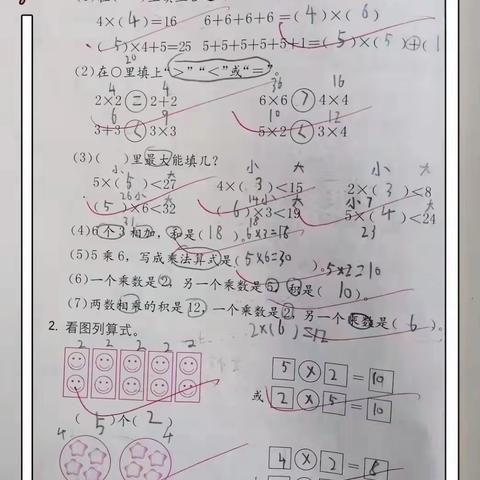 4×(4)=16 6+6+6+6=(4)×(6)
(5)×4+5=25 5+5+5+5+5+1=(5)×(5)⊕(1
20
(2)在○里填上“>”“<”或“=”。
4 4 36 16
2×2=2+2 6×6>4×4
6 9 10 12
3+3<3×3 5×2<3×4
(3)( )里最大能填几?
小 大 小 大 小 大
5×(5)<27 4×(3)<15 2×(3)<8
(5)×6<32 (6)×3<19 5×(4)<24
(4)6个3相加,和是(18)。6×3=18
23
(5)5乘6,写成乘法算式是(5×6=30)。5×2=10
(6)一个乘数是2,另一个乘数是5,积是(10)。
(7)两数相乘的积是12,一个乘数是2,另一个乘数是(6)。
2×(6)=12
2. 看图列算式。
2 2 2 2 2
5×2=10
或 2×5=10
(5)个(2)
4 4
4×2=8